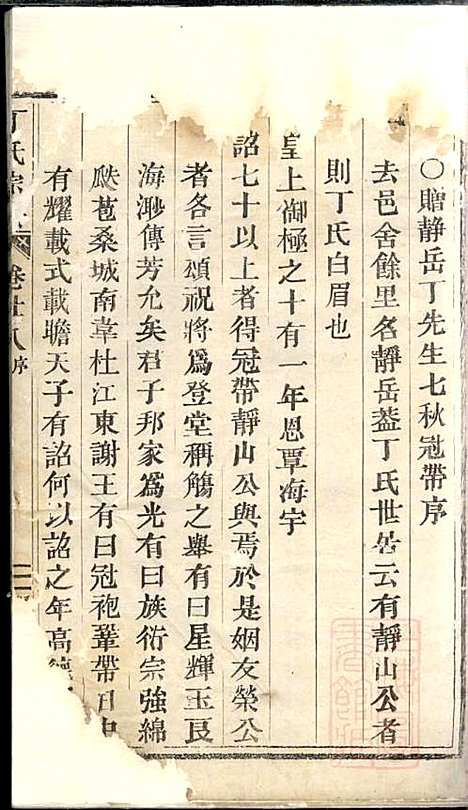 ○贈靜岳丁先生七秋冠帶序
去邑舍餘里名靜岳葢丁氏世居云有靜山公者
則丁氏白眉也
皇上御極之十有一年恩覃海宇
詔七十以上者得冠帶靜山公與焉於是姻友榮公
者各言頌祝將爲登堂稱觴之舉有曰星輝玉艮
海渺傳芳允矣君子邦家爲光有曰族衍宗強綿
瓞苞桑城南韋杜江東謝王有曰冠袍鞶帶日中
有耀載式載瞻天子有詔何以詔之年高德
丁氏宗
卷廿八序